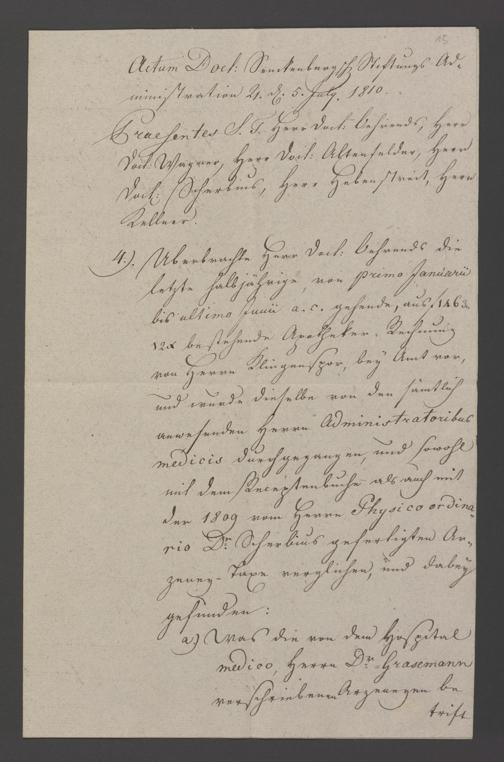 15
Actum Doct: Senckenbergisch Stiftungs Ad-
ministration d. 5. July. 1810.
Praesentes S. T. Herr Doct: Behrends, Herr
Doct: Wagner, Herr Doct: Altenfelder, Herr
Doct: Scherbius, Herr Hebenstreit, Herr
Kellner.
4.). Uberbrachte Herr Doct: Behrends die
letzte halbjährige, von primo Januarii
bis ultimo Junii a. c. gehende, aus, 1463
12x bestehende Apotheker-Rechnung
von Herrn Klingenspor, bey Amt vor,
und wurde dieselbe von den sämtlich
anwesenden Herrn Administratoribus
medicis durchgegangen, und sowohl
mit dem Receptenbuche als auch mit
der 1809 vom Herrn Physico ordina-
rio Dr. Scherbius gefertigten Ar-
zeney-Taxe verglichen, und dabey
gefunden:
a) Was die von dem Hospital
medico, Herrn Dr. Grasemann
verschriebenen Arzeneyen be
trift